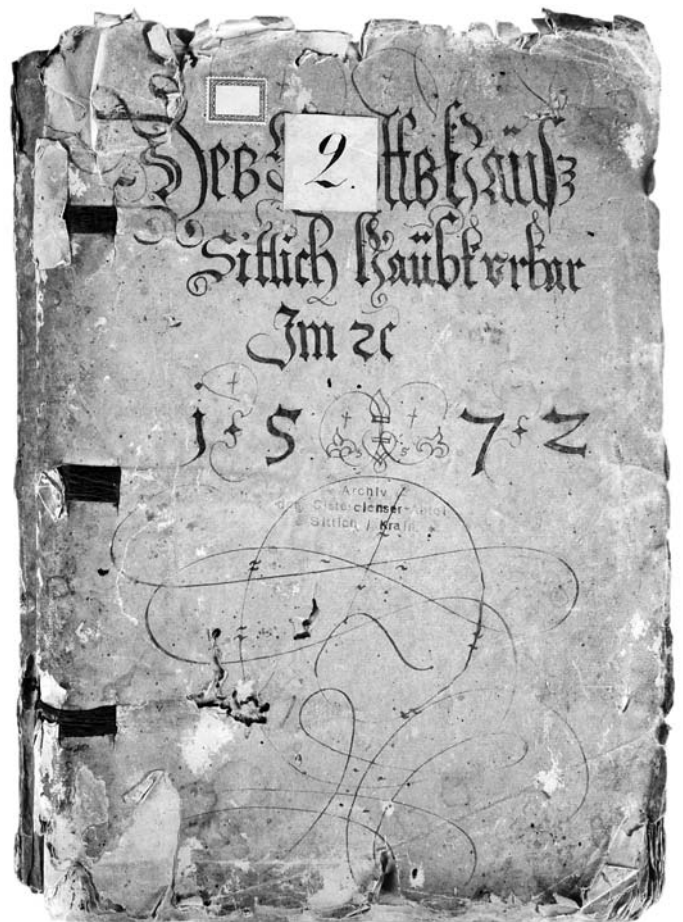 Des
2.
Sittich Haübturbar
Im ꝛc
1572
Archiv
der Cistercienser-Abtei
Sittich / Krain